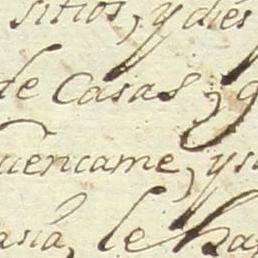 sitios, y dies
de Casas, y
uencame, y su
asia, le ha